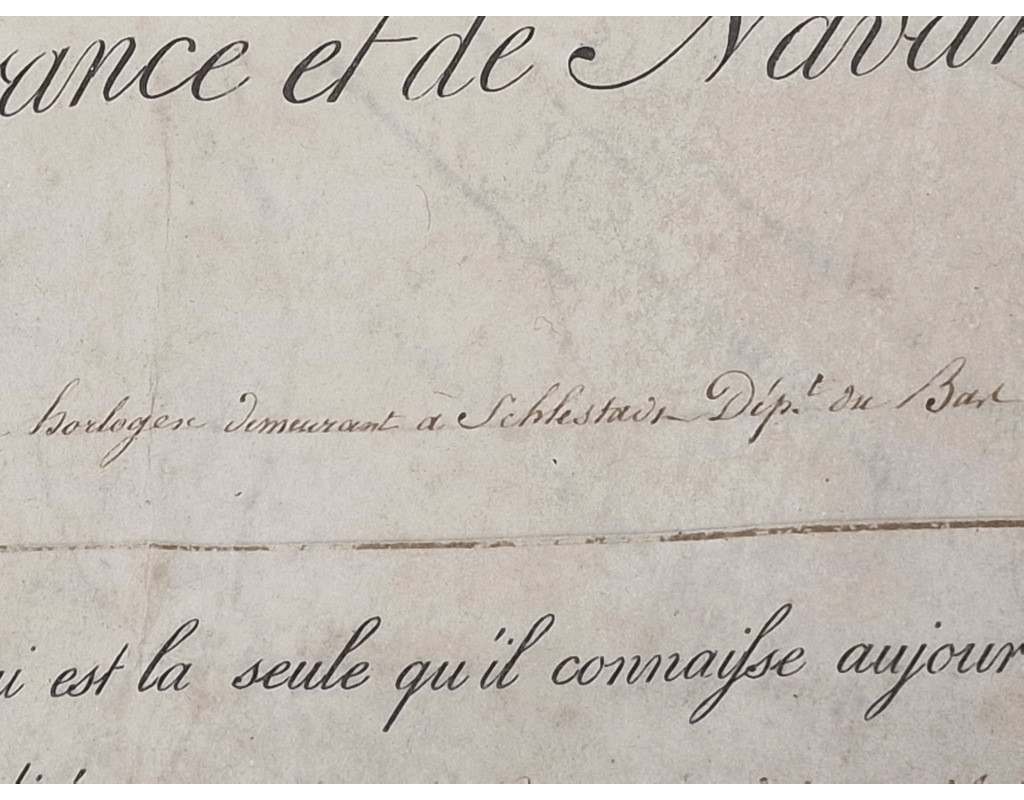 rance et de Navar
horloger demeurant à Schlestadt Dép.t du Bas
ui est la seule qu'il connaisse aujour